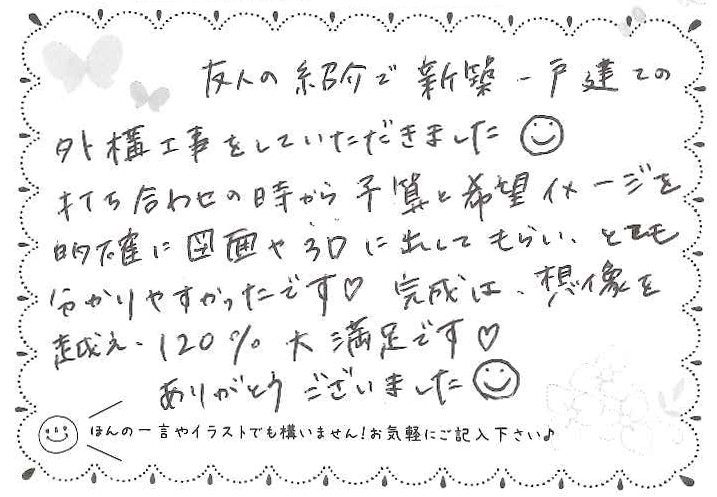 友人の紹介で新築一戸建ての
外構工事をしていただきました
打ち合わせの時から予算と希望イメージを
的確に図面や3Dに出してもらい、とても
分かりやすかったです♡ 完成は、想像を
越え、120% 大満足です♡
ありがとうございました
ほんの一言やイラストでも構いません!お気軽にご記入下さい♪